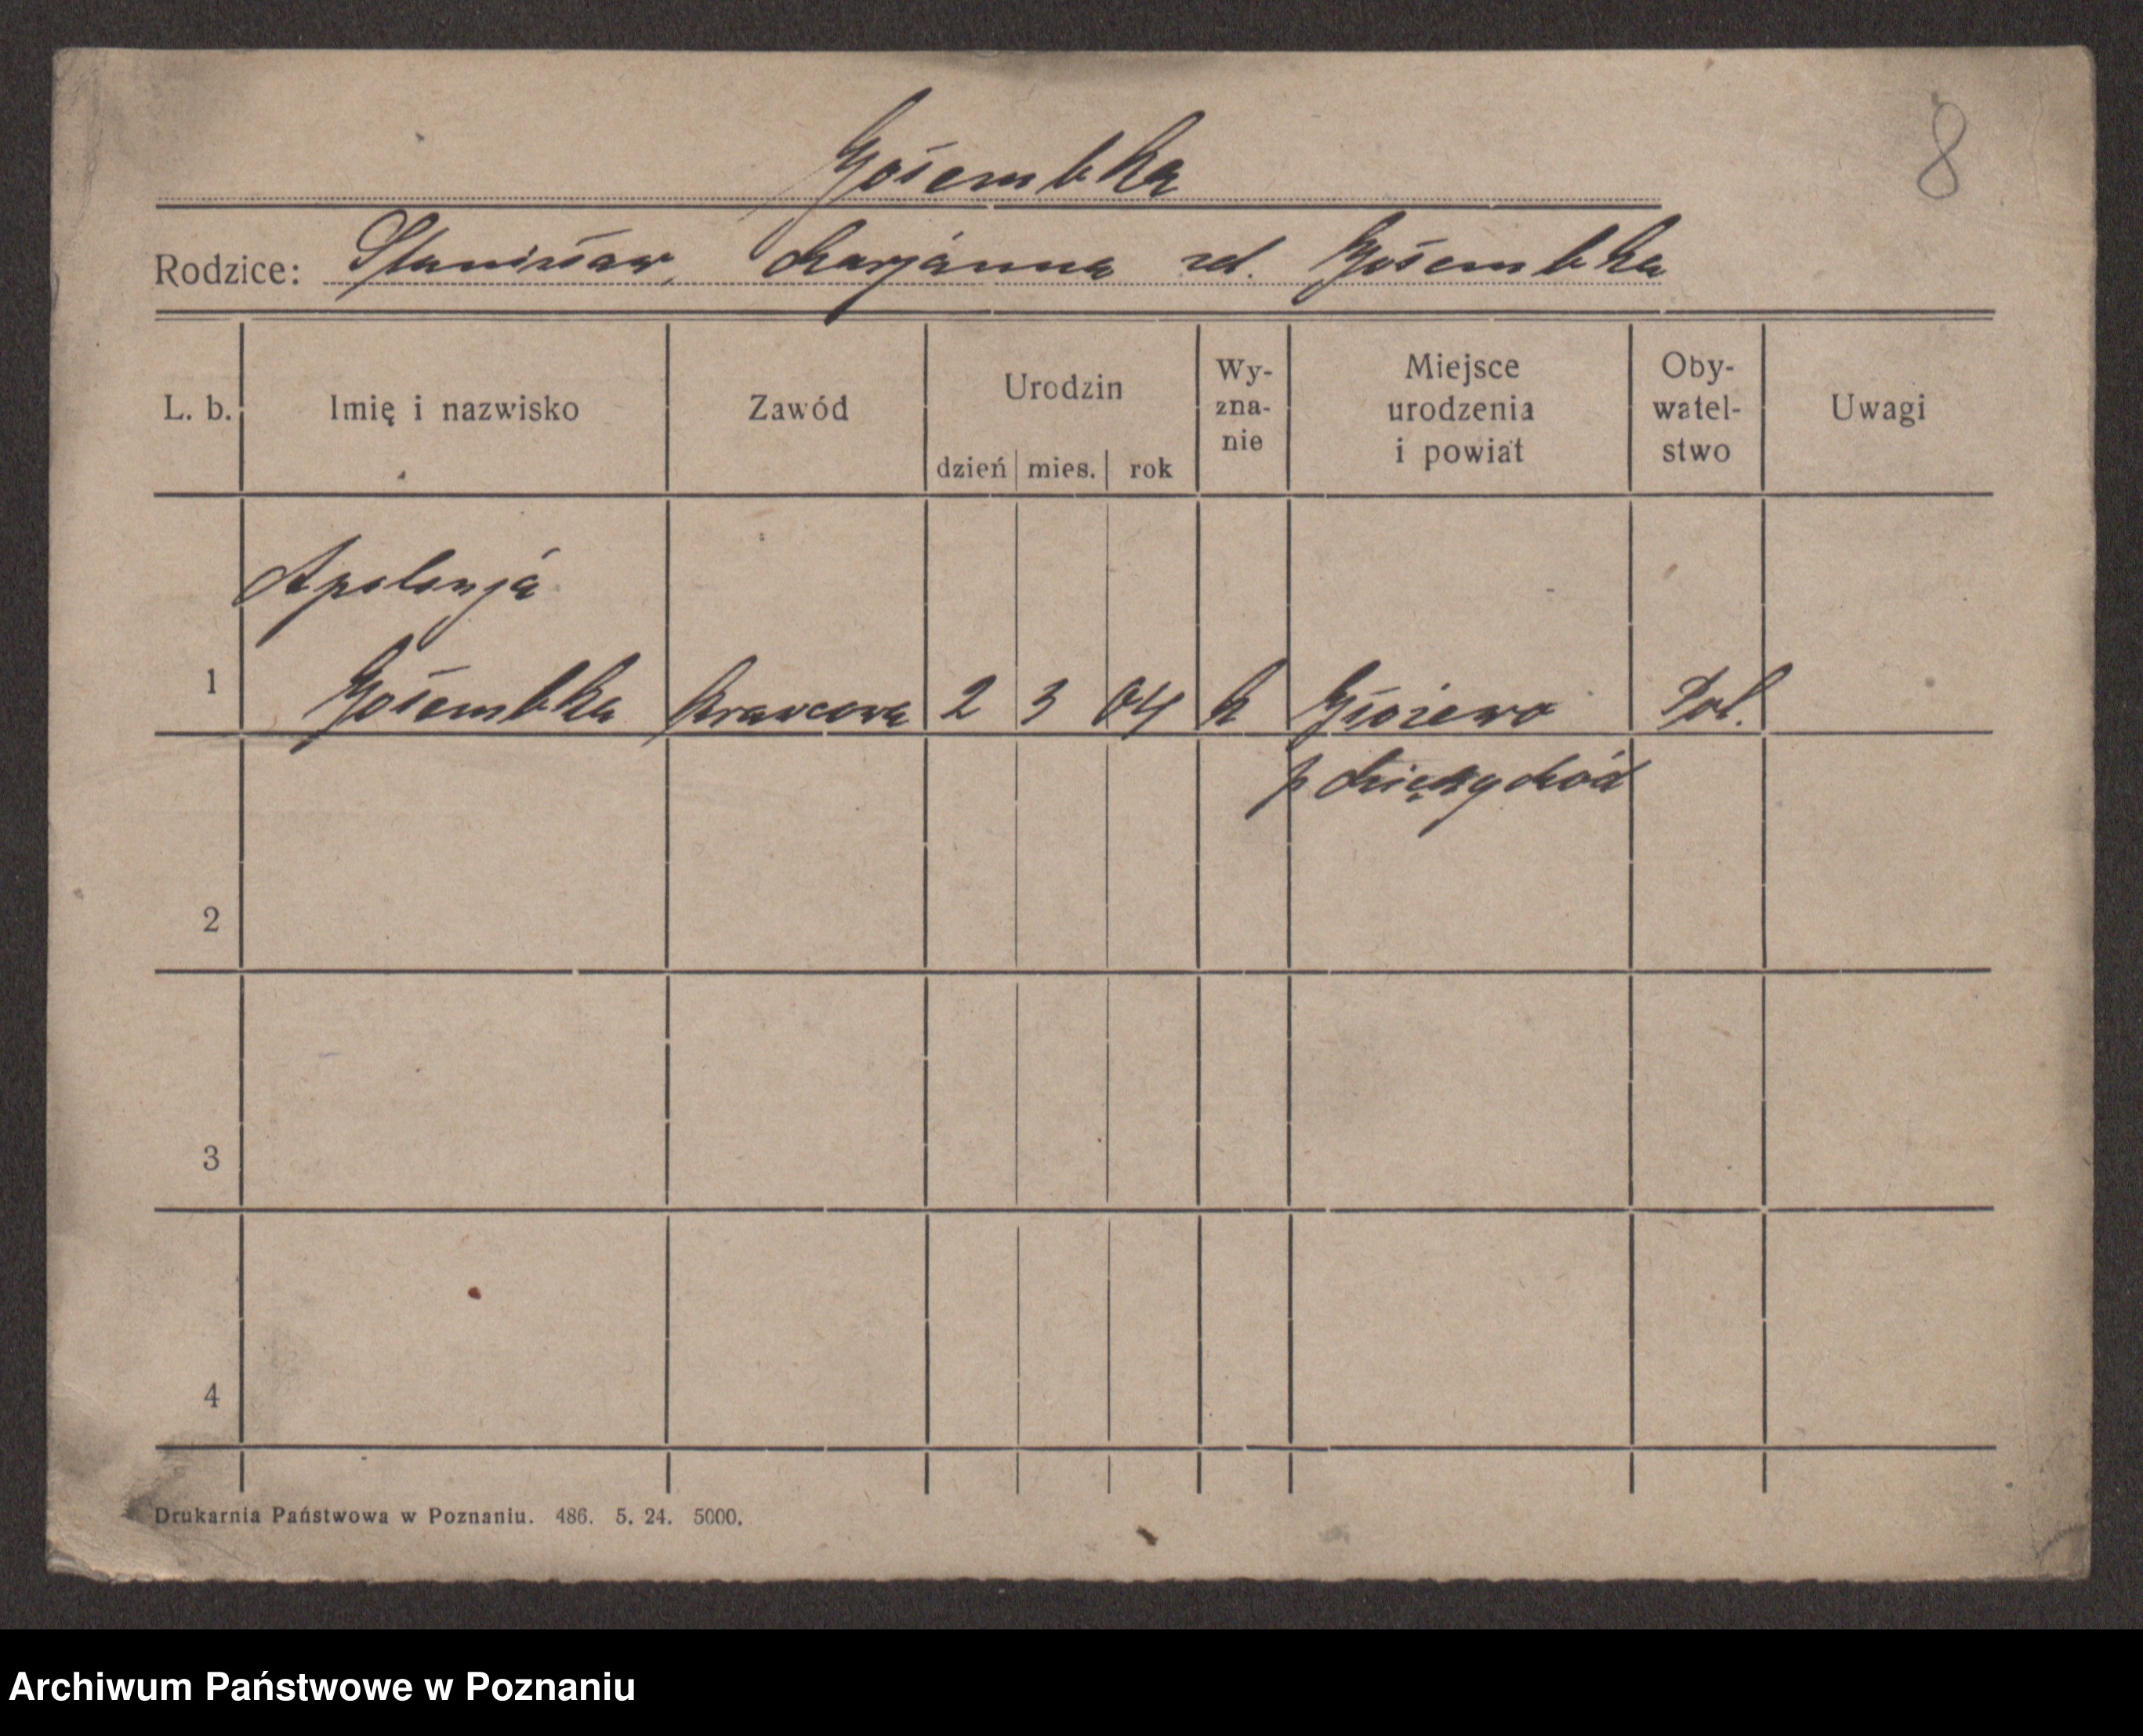 Gołembka
8
Rodzice: Stanisław, Marjanna zd. Gołembka
L. b. Imię i nazwisko Zawód Urodzin dzień mies. rok Wy-zna-nie Miejsce urodzenia i powiat Oby-watel-stwo Uwagi
Apolonja
1 Gołembka krawcowa 2 3 04 k Głożewo Pol.
p Międzychód
2
3
4
Drukarnia Państwowa w Poznaniu. 486. 5. 24. 5000.
Archiwum Państwowe w Poznaniu